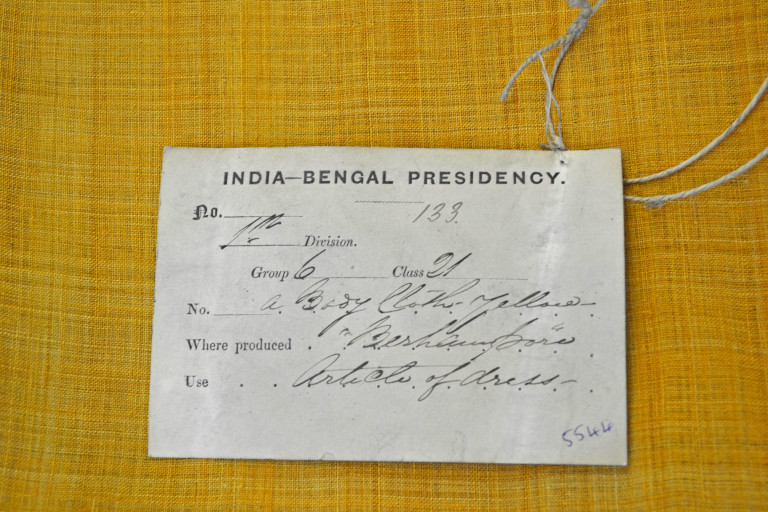 INDIA—BENGAL PRESIDENCY.
No. 133.
1st Division.
Group 6 Class 21
No. a Body Cloth - Yellow -
Where produced . "Berhampore"
Use . . Article of dress -
5544